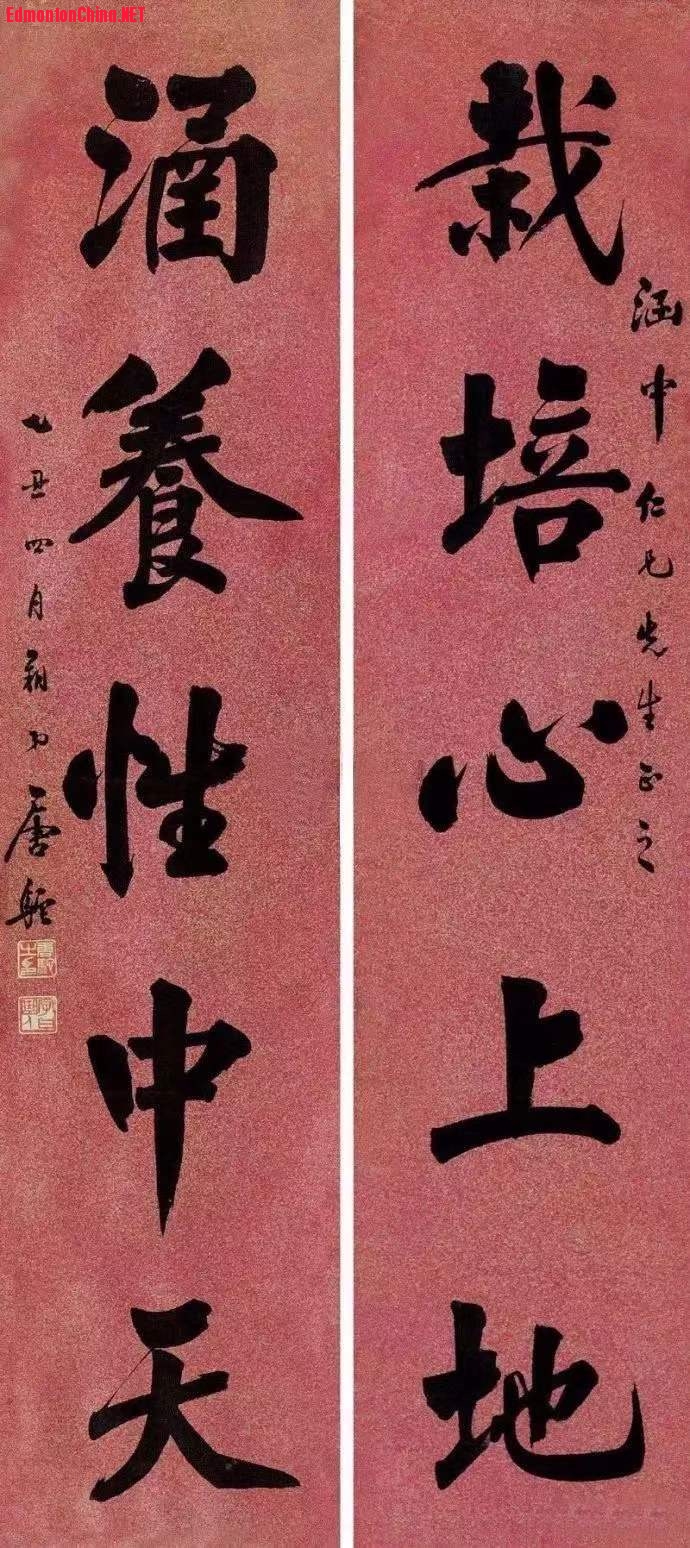 EdmontonChina.NET
涵中仁兄先生正之
栽培心上地
涵養性中天
乙丑四月穎川唐駝